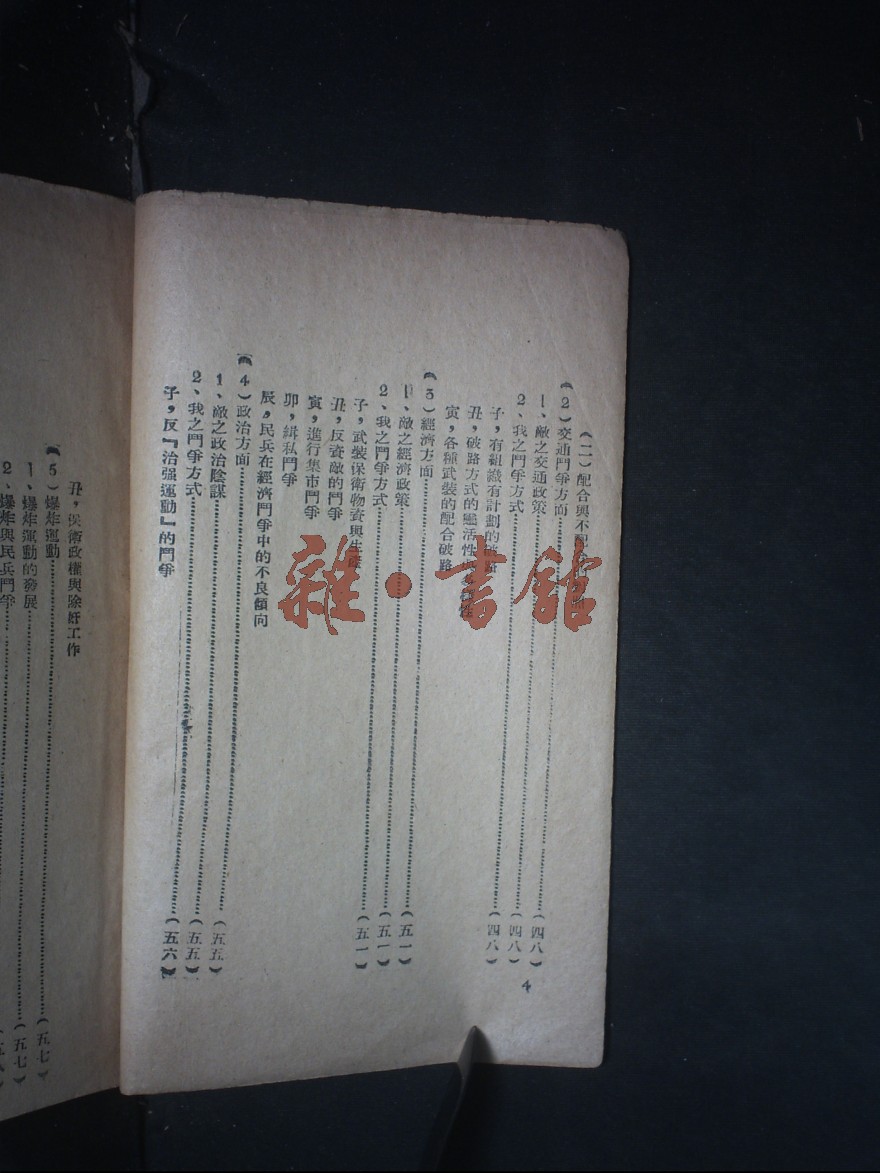 (二)配合與不配合
(2)交通鬥爭方面……(四八)
1、敵之交通政策……(四八)
2、我之鬥爭方式……(四八)
子,有組織有計劃的破路
丑,破路方式的靈活性
寅,各種武裝的配合破路
(3)經濟方面……(五一)
1、敵之經濟政策……(五一)
2、我之鬥爭方式……(五一)
子,武裝保衛物資與生產
丑,反資敵的鬥爭
寅,進行集市鬥爭
卯,緝私鬥爭
辰,民兵在經濟鬥爭中的不良傾向
(4)政治方面……(五五)
1、敵之政治陰謀……(五五)
2、我之鬥爭方式……(五六)
子,反『治强運動』的鬥爭
4
丑,保衛政權與除奸工作
(5)爆炸運動……(五七)
1、爆炸運動的發展……(五七)
2、爆炸與民兵鬥爭……
雜·書館